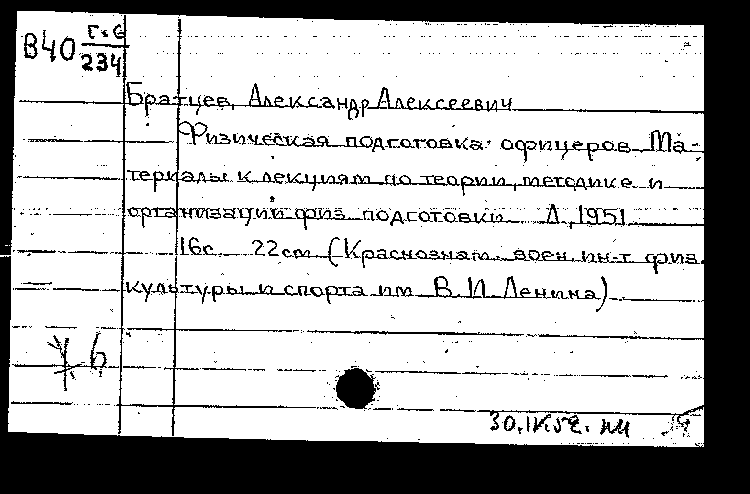 В40 Г-6
234
Братцев, Александр Алексеевич
Физическая подготовка офицеров. Ма-
териалы к лекциям по теории, методике и
организации физ. подготовки. Л., 1951
16с. 22см (Краснознам. воен. ин-т физ.
культуры и спорта им. В. И. Ленина)
30.IV.52.